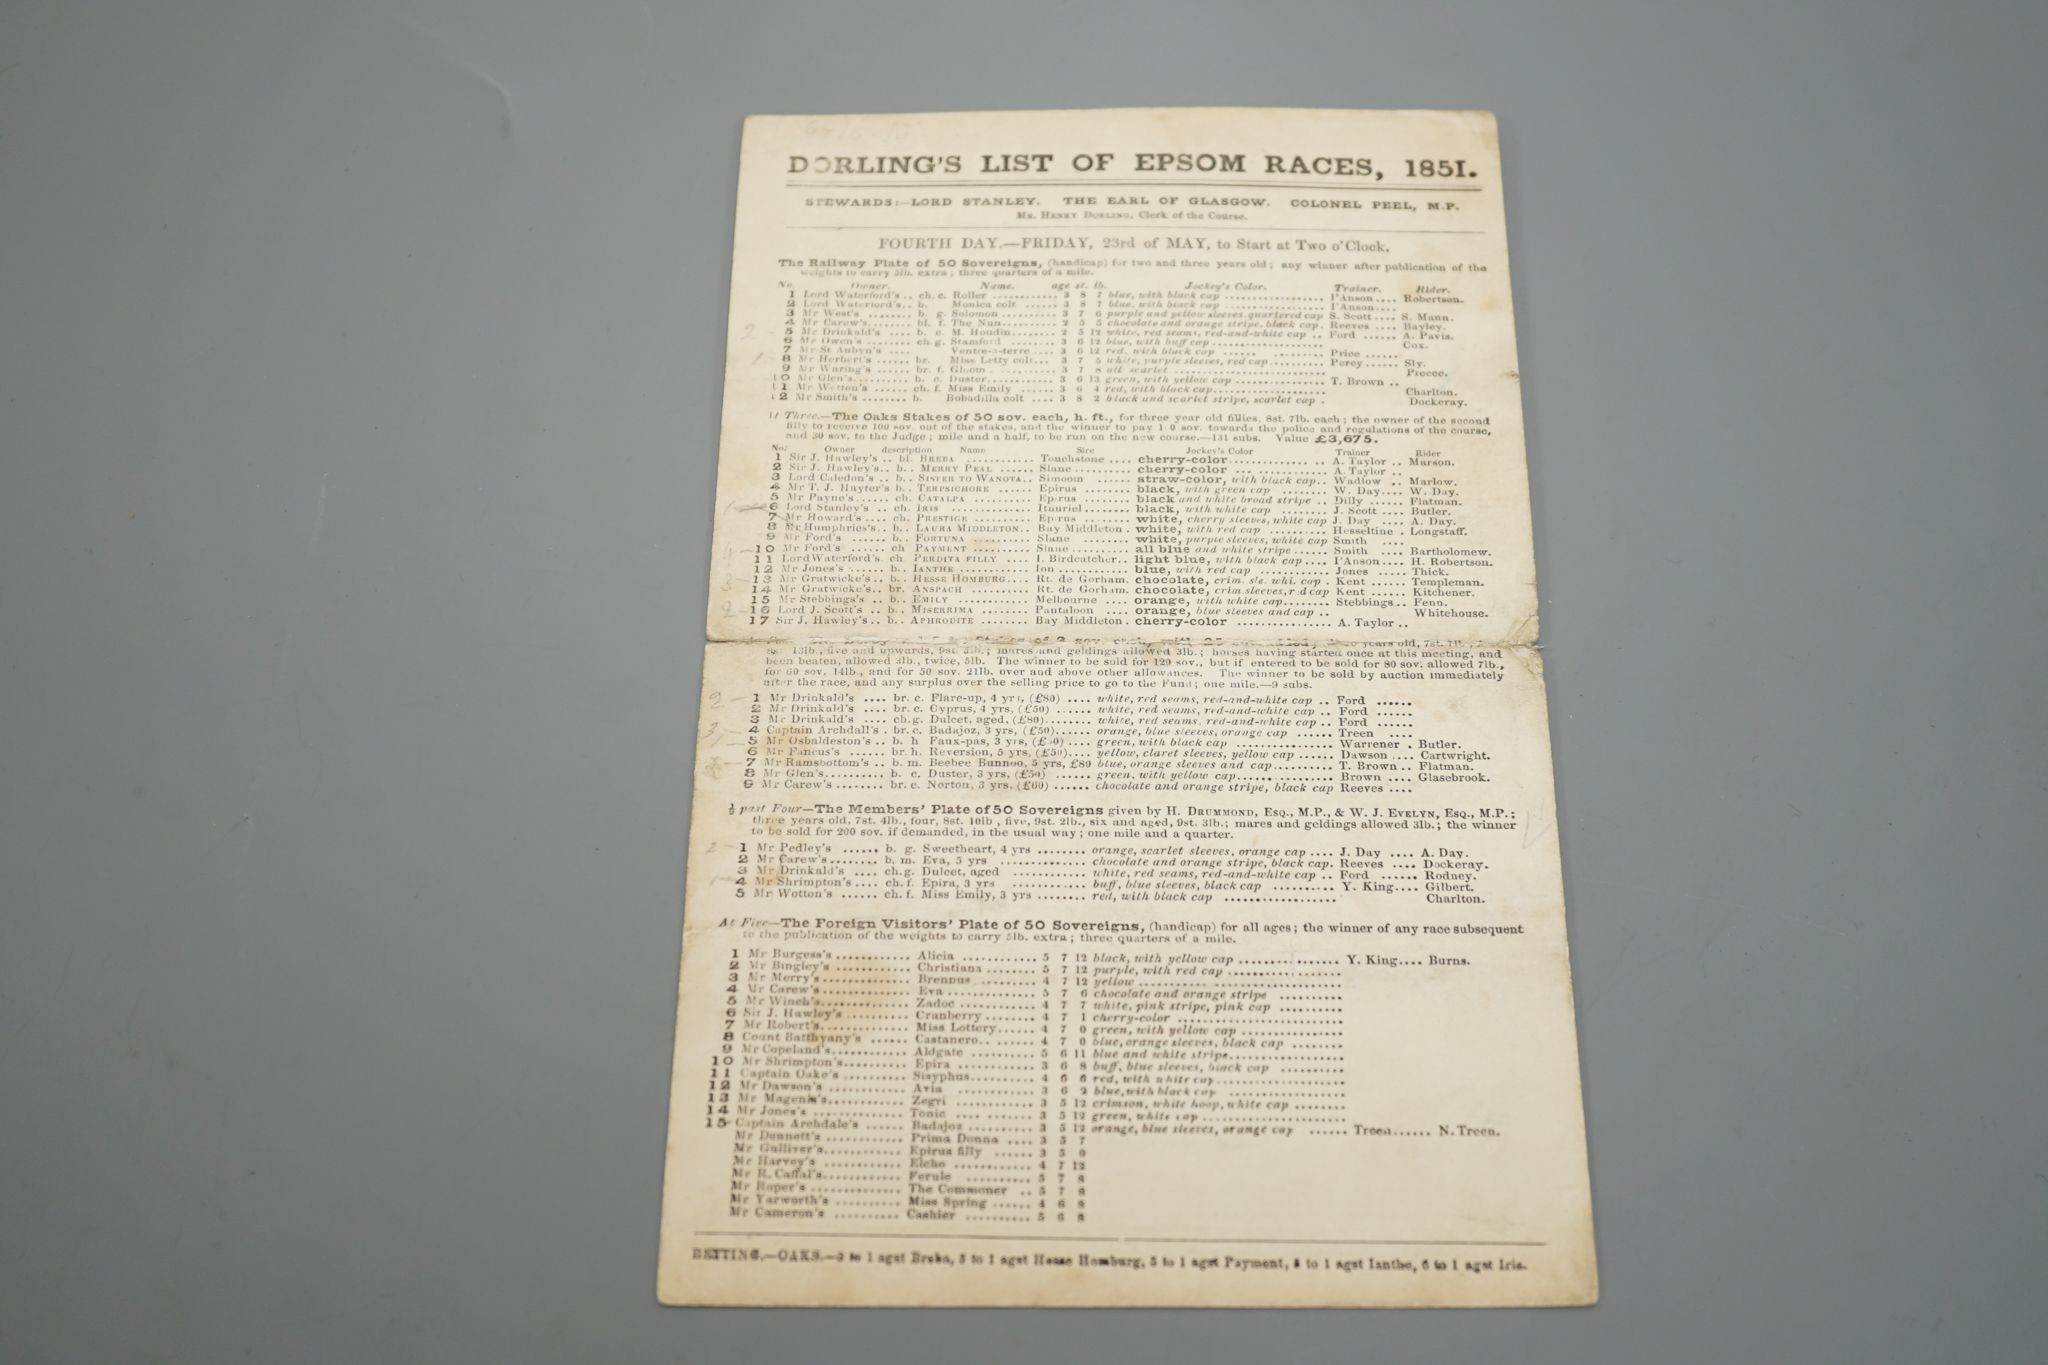 DORLING'S LIST OF EPSOM RACES, 1851.
STEWARDS:—LORD STANLEY. THE EARL OF GLASGOW. COLONEL PEEL, M.P.
MR. HENRY DORLING, Clerk of the Course.
FOURTH DAY.—FRIDAY, 23rd of MAY, to Start at Two o'Clock.
The Railway Plate of 50 Sovereigns, (handicap) for two and three years old; any winner after publication of the
weights to carry 5lb. extra; three quarters of a mile.
No. Owner. Name. age st. lb. Jockey's Color. Trainer. Rider.
1 Lord Waterford's .. ch. c. Roller ............ 3 8 7 blue, with black cap .................. I'Anson .... Robertson.
2 Lord Waterford's .. b. Monica colt ...... 3 8 7 blue, with black cap .................. I'Anson ....
3 Mr West's ........ b. g. Solomon .......... 3 7 6 purple and yellow sleeves, quartered cap S. Scott .... S. Mann.
4 Mr Carew's ........ bl. f. The Nun .......... 2 5 5 chocolate and orange stripe, black cap. Reeves .... Bayley.
5 Mr Drinkald's .... b. c. M. Houdin .......... 2 5 12 white, red seams, red-and-white cap .. Ford ...... A. Pavis.
6 Mr Owen's ........ ch. g. Stamford ........ 3 6 12 blue, with buff cap .................... Cox.
7 Mr St Aubyn's .... Ventre-a-terre .... 3 6 12 red, with black cap ...... Price ......
8 Mr Herbert's ...... br. Miss Letty colt... 3 7 5 white, purple sleeves, red cap .......... Percy ...... Sly.
9 Mr Waring's ...... br. f. Gloom .......... 3 7 8 all scarlet .................... Preece.
10 Mr Glen's .......... b. c. Duster ............ 3 6 13 green, with yellow cap ................ T. Brown ..
11 Mr Wotton's ...... ch. f. Miss Emily ...... 3 6 4 red, with black cap .................... Charlton.
12 Mr Smith's ........ b. Bobadilla colt .... 3 8 2 black and scarlet stripe, scarlet cap . Dockeray.
At Three.—The Oaks Stakes of 50 sov. each, h. ft., for three year old fillies, 8st. 7lb. each; the owner of the second
filly to receive 100 sov. out of the stakes, and the winner to pay 1 0 sov. towards the police and regulations of the course,
and 30 sov. to the Judge; mile and a half, to be run on the new course.—131 subs. Value £3,675.
No. Owner description Name Sire Jockey's Color Trainer Rider
1 Sir J. Hawley's .. bl. BREBA ............ Touchstone .... cherry-color .................. A. Taylor .. Marson.
2 Sir J. Hawley's .. b. . MERRY PEAL ...... Slane .......... cherry-color ... ............ A. Taylor ..
3 Lord Caledon's .. b. . SISTER TO WANOTA .. Simoom ...... straw-color, with black cap .. Wadlow .. Marlow.
4 Mr T. J. Hayter's b. . TERPSICHORE ...... Epirus ........ black, with green cap ........ W. Day .... W. Day.
5 Mr Payne's ...... ch. CATALPA .......... Epirus ........ black and white broad stripe .. Dilly ...... Flatman.
6 Lord Stanley's .. ch. IRIS .............. Ithuriel ........ black, with white cap ........ J. Scott .... Butler.
7 Mr Howard's .... ch. PRESTIGE .......... Epirus ........ white, cherry sleeves, white cap J. Day .... A. Day.
8 Mr Humphries's .. b. . LAURA MIDDLETON .. Bay Middleton . white, with red cap .......... Hesseltine . Longstaff.
9 Mr Ford's ...... b. . FORTUNA .......... Slane ........ white, purple sleeves, white cap Smith ....
10 Mr Ford's ...... ch PAYMENT .......... Slane .......... all blue and white stripe ...... Smith .... Bartholomew.
11 Lord Waterford's ch PERDITA FILLY .... I. Birdcatcher .. light blue, with black cap .... I'Anson .... H. Robertson.
12 Mr Jones's ...... b. . IANTHE ............ Ion ............ blue, with red cap ............ Jones ..... Thick.
13 Mr Gratwicke's .. b. . HESSE HOMBURG .... Rt. de Gorham. chocolate, crim. sle. whi. cap . Kent ...... Templeman.
14 Mr Gratwicke's .. br. ANSPACH .......... Rt. de Gorham. chocolate, crim. sleeves, r d cap Kent ...... Kitchener.
15 Mr Stebbings's .. b. . EMILY ............ Melbourne .... orange, with white cap ........ Stebbings .. Fenn.
16 Lord J. Scott's .. b. . MISERRIMA ........ Pantaloon .... orange, blue sleeves and cap .. Whitehouse.
17 Sir J. Hawley's .. b. . APHRODITE ........ Bay Middleton . cherry-color ................ A. Taylor ..
Stakes of 3 sov. each, with years old, 7st. 7lb.,
8st 13lb., five and upwards, 9st. 5lb.; mares and geldings allowed 3lb.; horses having started once at this meeting, and
been beaten, allowed 3lb., twice, 5lb. The winner to be sold for 120 sov., but if entered to be sold for 80 sov. allowed 7lb.,
for 60 sov. 14lb., and for 50 sov. 21lb. over and above other allowances. The winner to be sold by auction immediately
after the race, and any surplus over the selling price to go to the Fund; one mile.—9 subs.
2 — 1 Mr Drinkald's .... br. c. Flare-up, 4 yrs, (£80) .... white, red seams, red-and-white cap .. Ford ......
2 Mr Drinkald's .... br. c. Cyprus, 4 yrs, (£50) ...... white, red seams, red-and-white cap .. Ford ......
3 Mr Drinkald's .... ch. g. Dulcet, aged, (£80) ........ white, red seams, red-and-white cap .. Ford ......
4 Captain Archdall's . br. c. Badajoz, 3 yrs, (£50) ...... orange, blue sleeves, orange cap ...... Treen ....
5 Mr Osbaldeston's .. b. h Faux-pas, 3 yrs, (£50) .... green, with black cap ................ Warrener . Butler.
6 Mr Fancus's ...... br. h. Reversion, 5 yrs, (£50) .... yellow, claret sleeves, yellow cap ...... Dawson .... Cartwright.
7 Mr Ramsbottom's .. b. m. Beebee Bunnoo, 5 yrs, £80 blue, orange sleeves and cap .......... T. Brown .. Flatman.
8 Mr Glen's .......... b. c. Duster, 3 yrs, (£50) ...... green, with yellow cap ................ Brown .... Glasebrook.
9 Mr Carew's ........ br. c. Norton, 3 yrs, (£60) ...... chocolate and orange stripe, black cap Reeves ....
½ past Four—The Members' Plate of 50 Sovereigns given by H. DRUMMOND, ESQ., M.P., & W. J. EVELYN, ESQ., M.P.;
three years old, 7st. 4lb., four, 8st. 10lb , five, 9st. 2lb., six and aged, 9st. 3lb.; mares and geldings allowed 3lb.; the winner
to be sold for 200 sov. if demanded, in the usual way; one mile and a quarter.
2 — 1 Mr Pedley's ...... b. g. Sweetheart, 4 yrs ........ orange, scarlet sleeves, orange cap .... J. Day .... A. Day.
2 Mr Carew's ........ b. m. Eva, 5 yrs .............. chocolate and orange stripe, black cap. Reeves .... Dockeray.
3 Mr Drinkald's .... ch. g. Dulcet, aged ............ white, red seams, red-and-white cap .. Ford ...... Rodney.
1 — 4 Mr Shrimpton's .... ch. f. Epira, 3 yrs ............ buff, blue sleeves, black cap .......... Y. King .... Gilbert.
5 Mr Wotton's ...... ch. f. Miss Emily, 3 yrs ........ red, with black cap .................. Charlton.
At Five—The Foreign Visitors' Plate of 50 Sovereigns, (handicap) for all ages; the winner of any race subsequent
to the publication of the weights to carry 5lb. extra; three quarters of a mile.
1 Mr Burgess's ............ Alicia ............ 5 7 12 black, with yellow cap ................ Y. King .... Burns.
2 Mr Bingley's ............ Christiana ........ 5 7 12 purple, with red cap ..................
3 Mr Merry's .............. Brennus .......... 4 7 12 yellow ................................
4 Mr Carew's .............. Eva .............. 5 7 6 chocolate and orange stripe ..........
5 Mr Winch's .............. Zadoc ............ 4 7 7 white, pink stripe, pink cap ..........
6 Sir J. Hawley's .......... Cranberry ........ 4 7 1 cherry-color ..........................
7 Mr Robert's .............. Miss Lottery ...... 4 7 0 green, with yellow cap ................
8 Count Batthyany's ...... Castanero .. ...... 4 7 0 blue, orange sleeves, black cap ........
9 Mr Copeland's ............ Aldgate .......... 5 6 11 blue and white stripe ..................
10 Mr Shrimpton's .......... Epira ............ 3 6 8 buff, blue sleeves, black cap ..........
11 Captain Oake's .......... Sisyphus .......... 4 6 6 red, with white cap ....................
12 Mr Dawson's ............ Avia ............ 3 6 2 blue, with black cap ..................
13 Mr Magenis's ............ Zegri ............ 3 5 12 crimson, white hoop, white cap ........
14 Mr Jones's .............. Tonic .... .... 3 5 12 green, white cap ......................
15 Captain Archdale's ...... Badajoz .......... 3 5 12 orange, blue sleeves, orange cap ...... Treen ...... N. Treen.
Mr Dennett's ............ Prima Donna .... 3 5 7
Mr Gulliver's ............ Epirus filly ...... 3 5 0
Mr Harvey's ............ Elcho ............ 4 7 12
Mr R. Caffal's ............ Ferule .......... 5 7 8
Mr Roper's .............. The Commoner .. 5 7 8
Mr Yarworth's .......... Miss Spring ...... 4 6 8
Mr Cameron's .......... Cashier .......... 5 6 8
BETTING.—OAKS.—3 to 1 agst Breba, 5 to 1 agst Hesse Homburg, 5 to 1 agst Payment, to 1 agst Ianthe, 6 to 1 agst Iris.